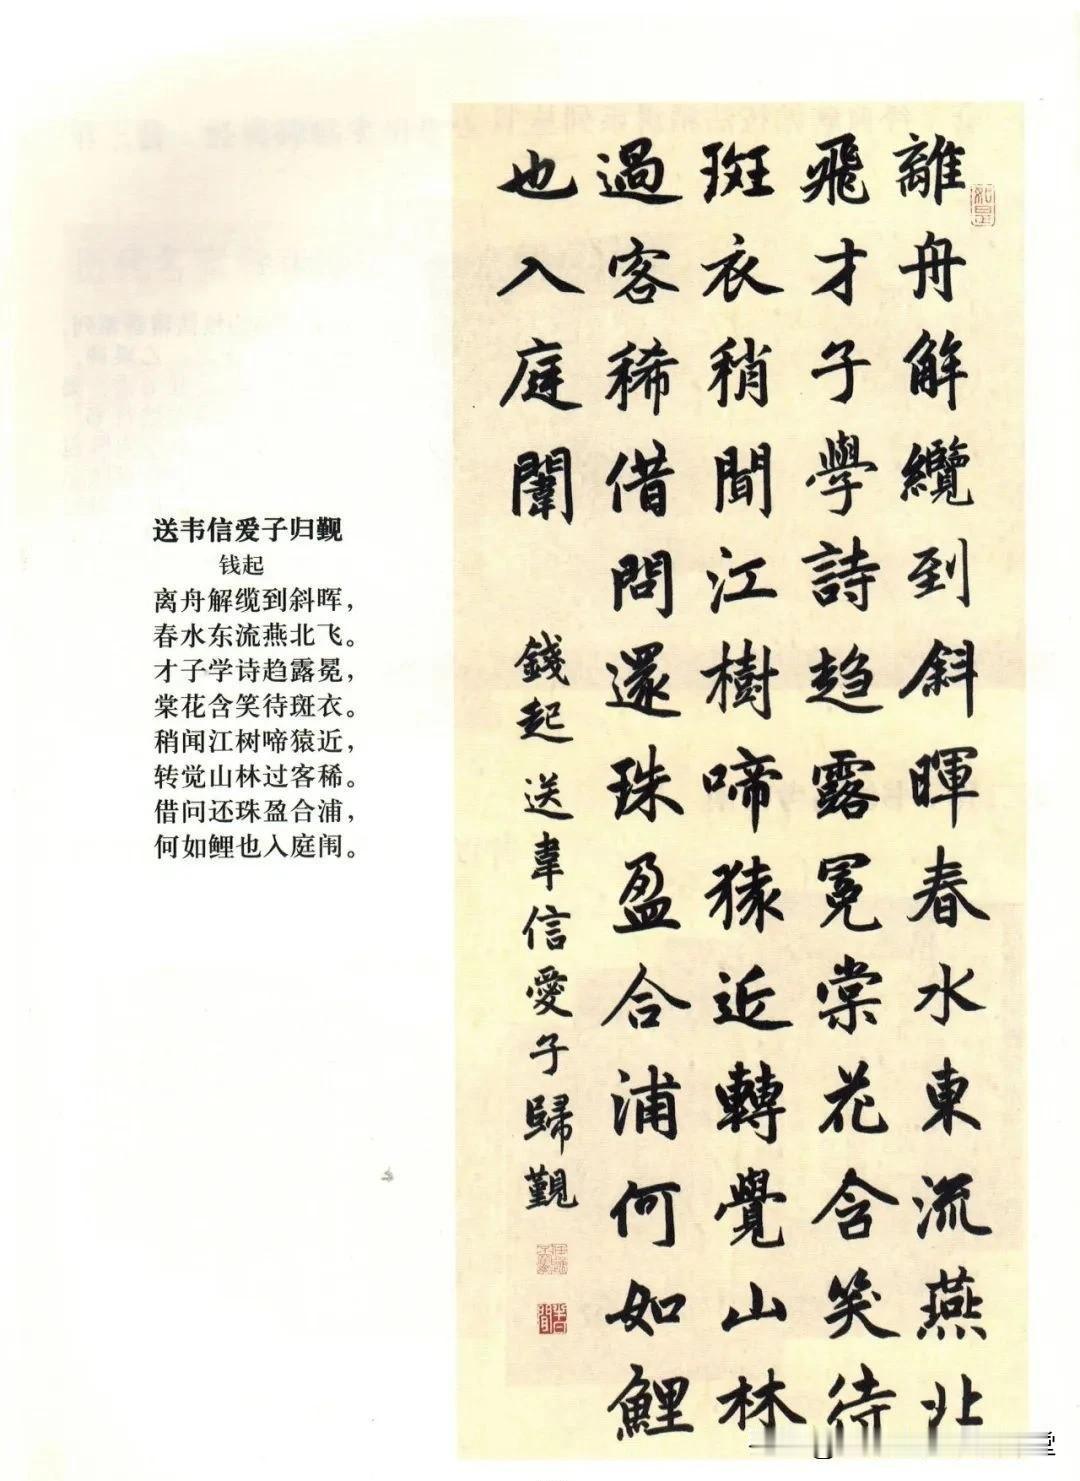 送韦信爱子归觐
钱起
离舟解缆到斜晖，
春水东流燕北飞。
才子学诗趋露冕，
棠花含笑待斑衣。
稍闻江树啼猿近，
转觉山林过客稀。
借问还珠盈合浦，
何如鲤也入庭闱。
離舟解纜到斜暉春水東流燕北
飛才子學詩趋露冕棠花含笑待
斑衣稍聞江樹啼猿近轉覺山林
過客稀借問還珠盈合浦何如鯉
也入庭闈
錢起送韋信愛子歸覲
如是